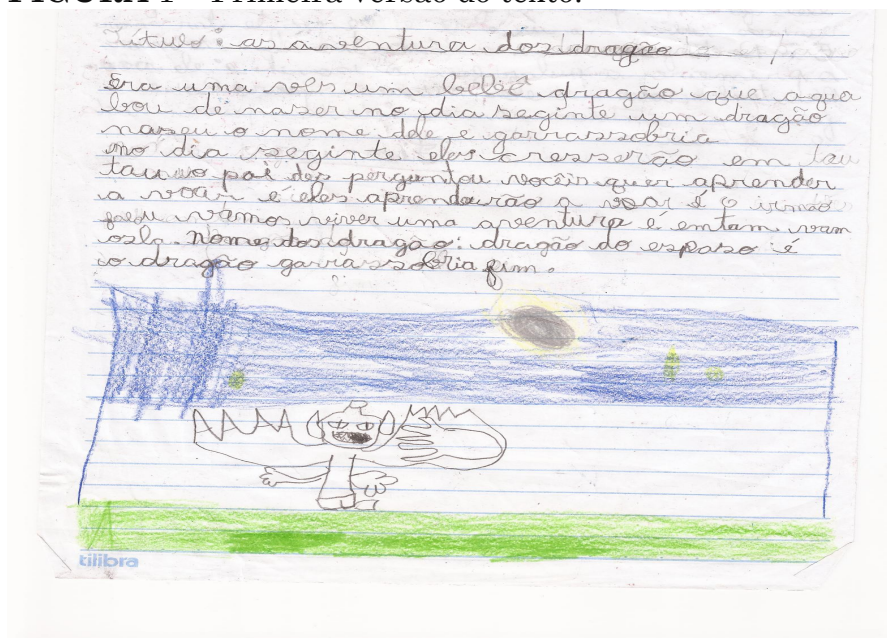 FIGURA 1 – Primeira versão do texto.
Título: as aventura dos dragão
Era uma ves um bebê dragão que aqua
bou de naser no dia seginte um dragão
naseu o nome dele e garrassobria
no dia seginte eles cresserão em tau
tau o pai des perguntou vocêis quer aprender
a voar é eles aprenderão a voar é o irmão
falou vamos viver uma aventura é emtam vam
osla. nomes dos dragão: dragão do espaso é
o dragão garrassobria fim.
tilibra